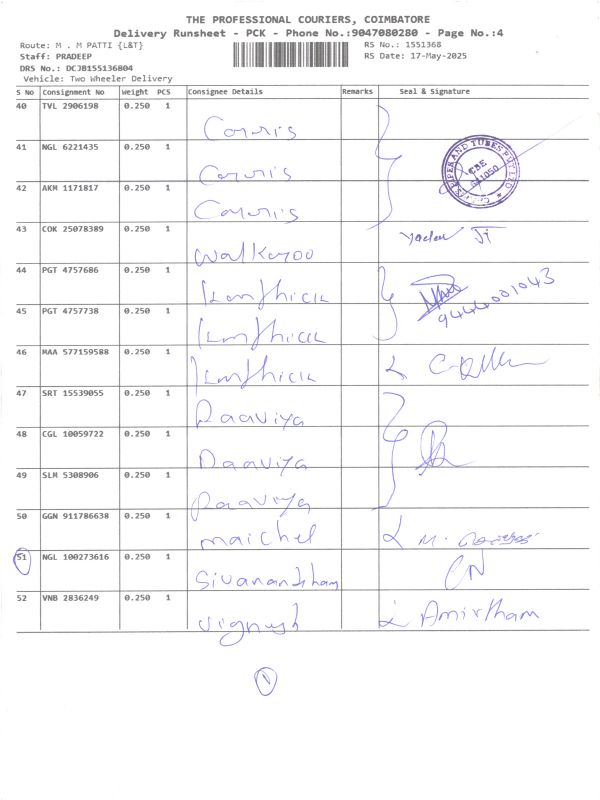 THE PROFESSIONAL COURIERS, COIMBATORE
Delivery Runsheet - PCK - Phone No.:9047080280 - Page No.:4
Route: M . M PATTI {L&T} RS No.: 1551368
Staff: PRADEEP RS Date: 17-May-2025
DRS No.: DCJB155136804
Vehicle: Two Wheeler Delivery
S No Consignment No Weight PCS Consignee Details Remarks Seal & Signature
40 TVL 2906198 0.250 1
41 NGL 6221435 0.250 1
PIPES AND TUBES PVT LTD
CBE
641050
42 AKM 1171817 0.250 1
43 COK 25078389 0.250 1 Walkaroo
44 PGT 4757686 0.250 1
9444001043
45 PGT 4757738 0.250 1
46 MAA 577159588 0.250 1
47 SRT 15539055 0.250 1 Daaviya
48 CGL 10059722 0.250 1 Daaviya
49 SLM 5308906 0.250 1 Daaviya
50 GGN 911786638 0.250 1 maichel
51 NGL 100273616 0.250 1
52 VNB 2836249 0.250 1 Vignesh Amirtham